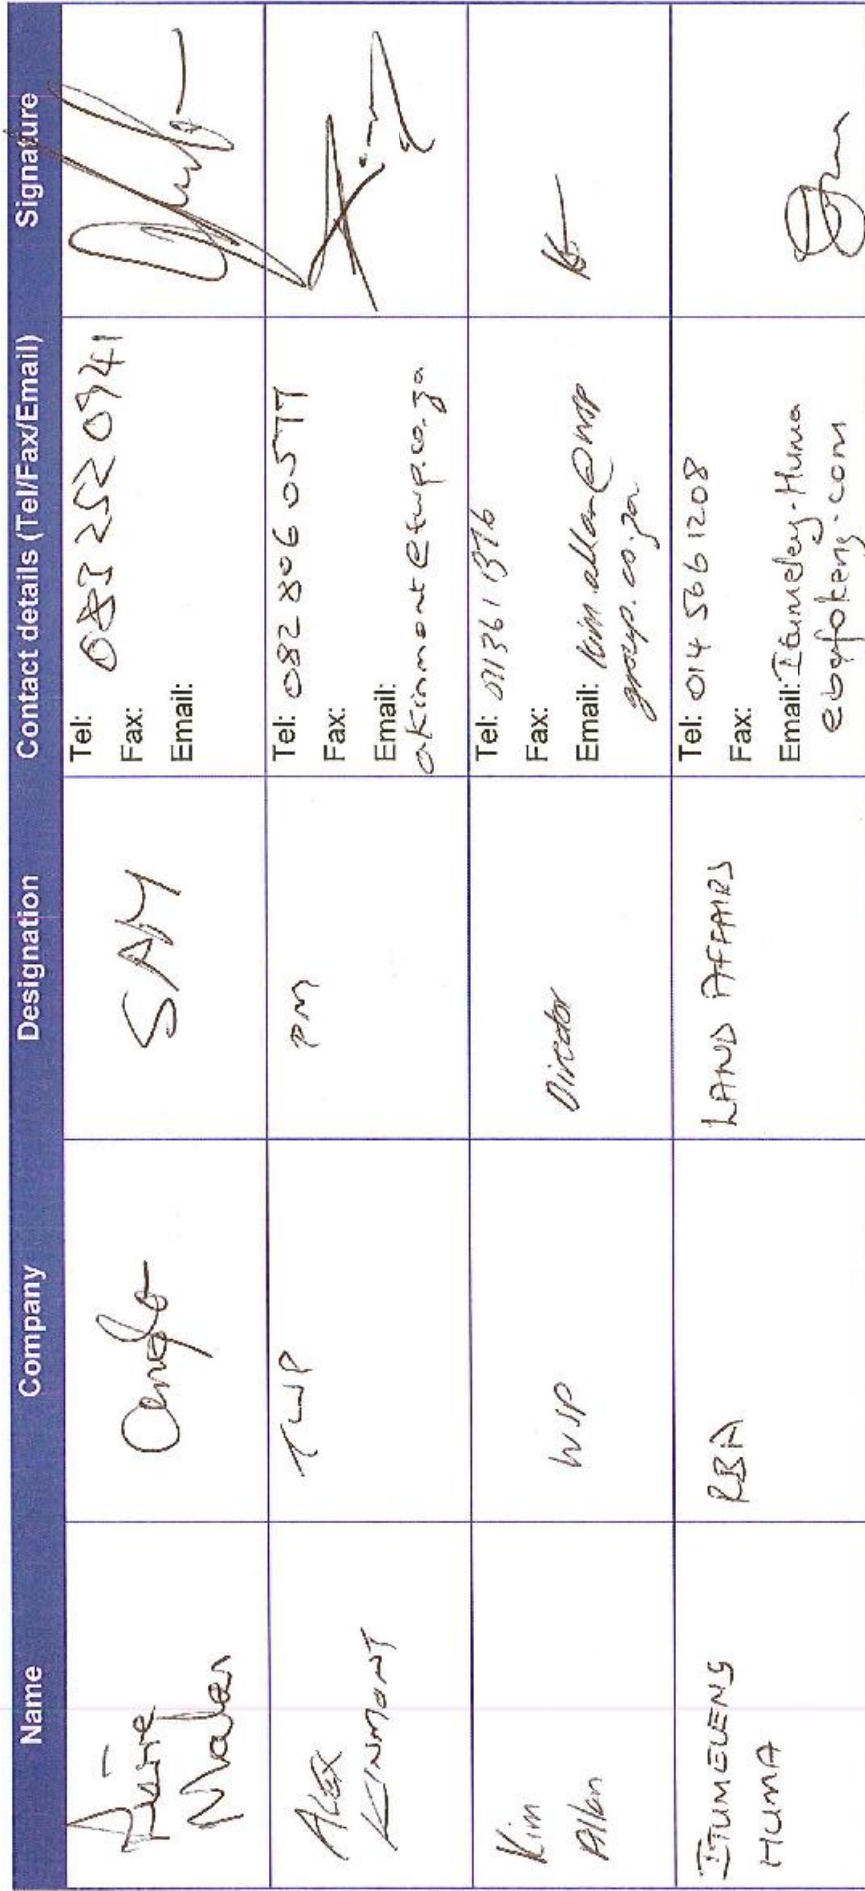 Name Company Designation Contact details (Tel/Fax/Email) Signature
Anglo SAM Tel: 083 252 0941
Fax:
Email:
ALEX TWP PM Tel: 082 806 0577
KINMONT Fax:
Email:
akinmont@twp.co.za
Kim WSP Director Tel: 011361 1376
Allan Fax:
Email: kim.allan@wsp
group.co.za
ITUMELENG RBA LAND AFFAIRS Tel: 014 566 1208
HUMA Fax:
Email: Itumeleng.Huma
@bafokeng.com